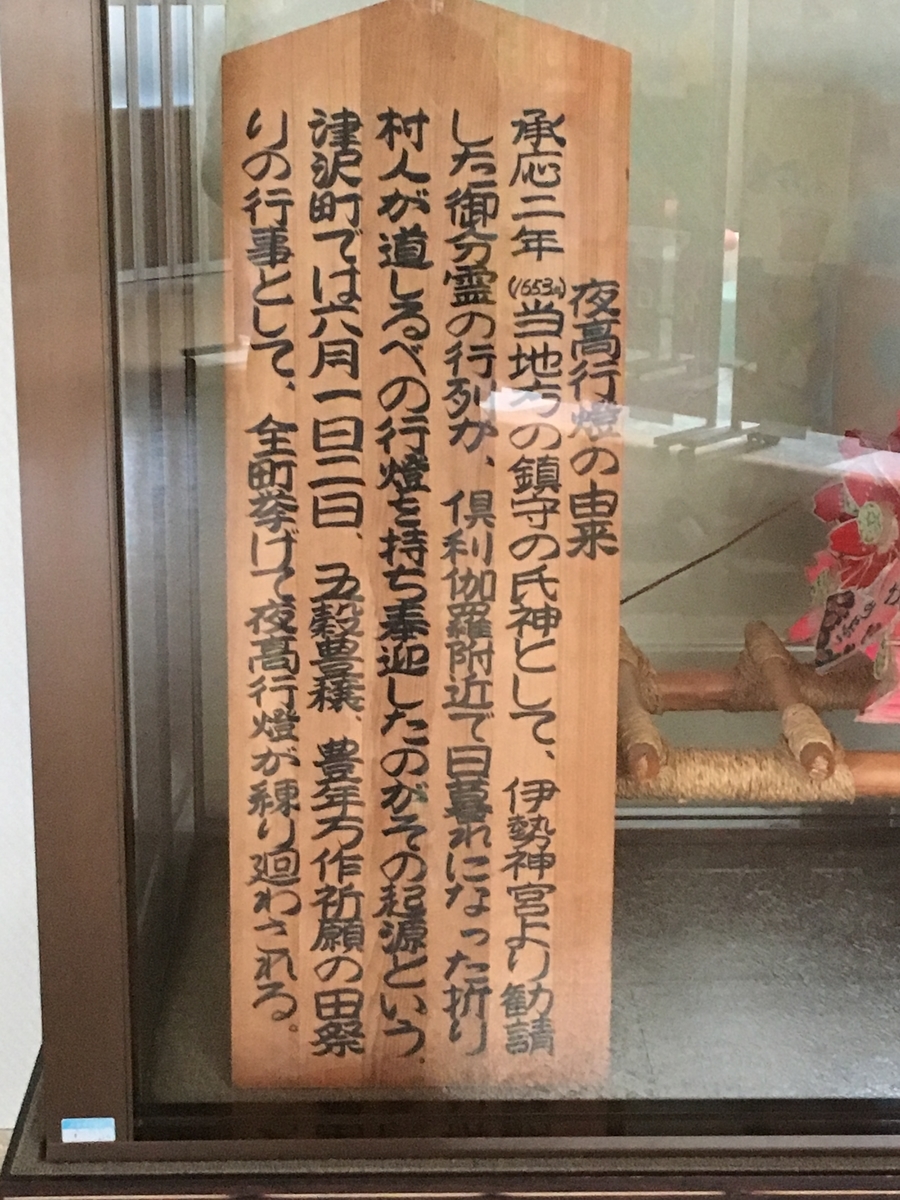 夜高行燈の由来
承応二年(1653年)当地方の鎮守の氏神として、伊勢神宮より勧請
した御分霊の行列が、倶利伽羅附近で日暮れになった折り
村人が道しるべの行燈を持ち奉迎したのがその起源という。
津沢町では六月一日二日、五穀豊穣、豊年万作祈願の田祭
りの行事として、全町挙げて夜高行燈が練り廻わされる。